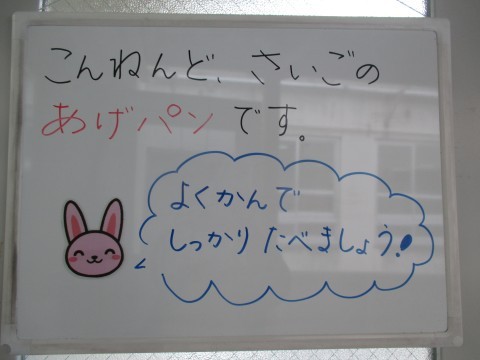 こんねんど、さいごの
あげパンです。
よくかんで
しっかりたべましょう!